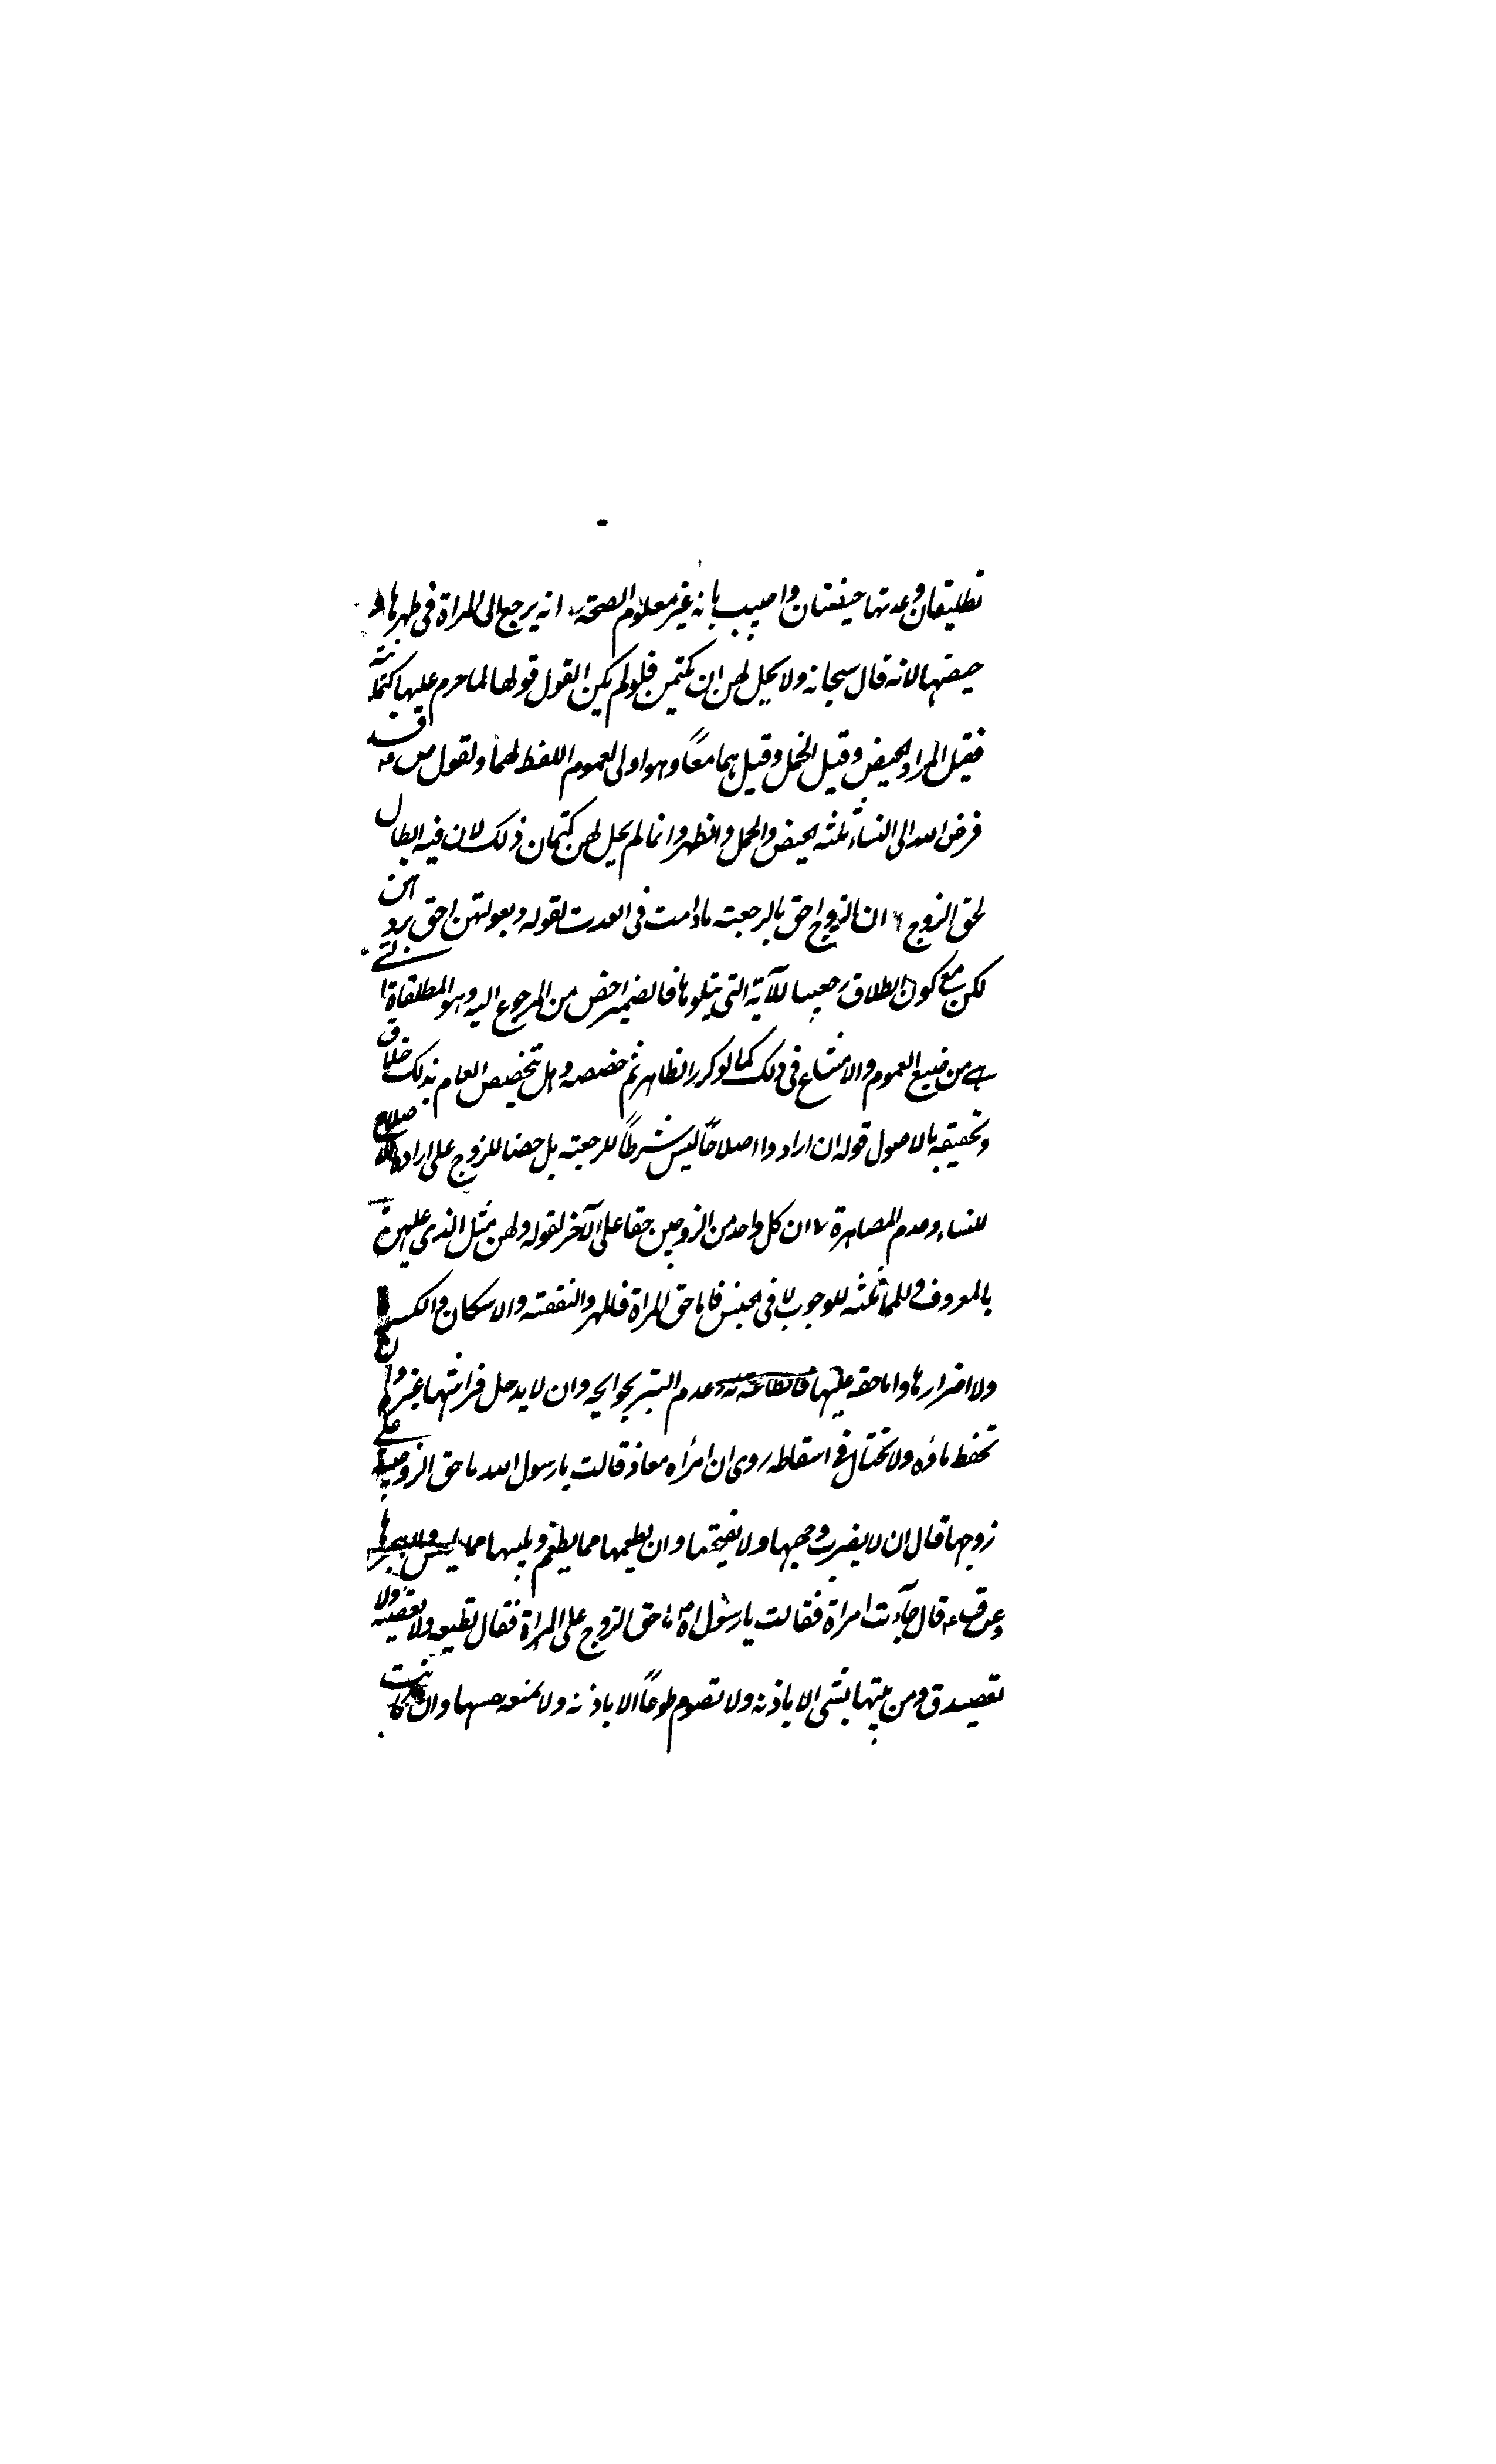 تطليقتان وعدتها حيضتان واجيب بانه غير معلوم الصحة ه انه يرجع الى المراة فى طهرها و
حيضها لانه قال سبحانه ولا يحل لهن ان يكتمن فلو لم يكن القول قولها لما حرم عليها كتمانه
فقيل المراد الحيض وقيل الحمل وقيل هما معًا وهو اولى لعموم اللفظ لهما ولقول ص ع قد
فرض الله الى النساء ثلثه الحيض والحمل والطهر وانما لم يحل لهن كتمان ذلك لان فيه ابطال
لحق الزوج ٦ ان الزوج احق بالرجعته مادامت فى العدت لقوله وبعولتهن احق بردهن
لكن مع كون الطلاق رجعيا للآية التى يتلوها فالضمير اخص من المرجوع اليه وهو المطلقاة التى
هى من صيغ العموم والامتناع فى ذلك كما لو كرر الظاهر ثم خصصه وهل تخصيص العام بذلك خلاف
وتحقيقه بالاصول قوله ان ارادوا اصلاحًا ليس شرطًا للرجعته بل حضا للزوج على ارادة الاصلاح
للنساء وعدم المضاهرة ٧ ان كل واحد من الزوجين حقا على الآخر لقوله ولهن مثل الذى عليهن
بالمعروف والمماثلثه للوجوب لا فى الجنس فاما حق المراة فالمهر والنفقته والاسكان والكسوة
ولا اضرارها واما حقه عليها فاطاعته له وعدم التبر بحوايجه وان لا يدخل فراشها غيره وان
تحفظ ماؤه ولا تحتال فى اسقاطه روى ان امرأه معاذ قالت يا رسول الله ما حق الزوجية على
زوجها قال ان لا يضرب وجهها ولا يقبحها وان يطعمها مما يطعم ويلبسها مما يلبس ولا يهجرها
وعن ق ع قال جآءت امراة فقالت يا رسول اه ما حق الزوج على المراة فقال تطيعه ولا تعصيه ولا
تصدق ومن بيتها بشى الا باذنه ولا تصوم طوعًا الا باذنه ولا تمنعه نفسها وان كانت